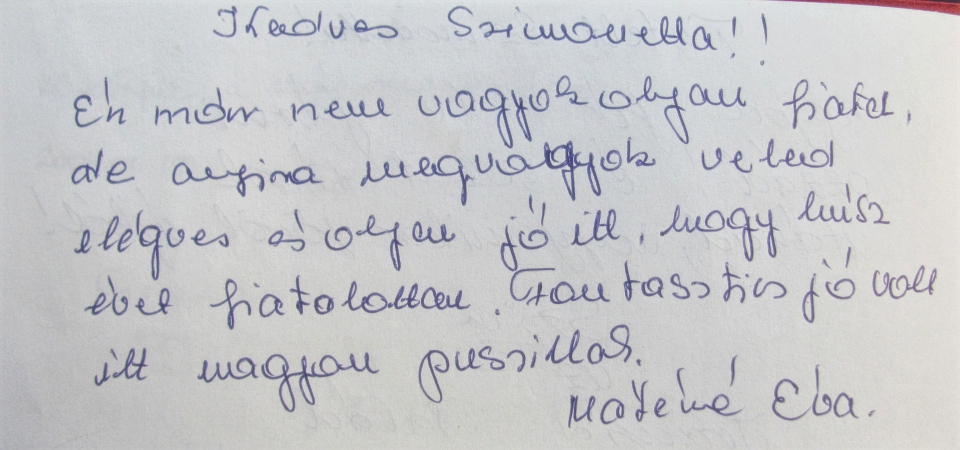 Kedves Szimonetta!!
Én már nem vagyok olyan fiatal,
de anyira megvagyok veled
elégves és olyan jó itt, hogy húsz
évet fiatalottam. Fantasstics jó volt
itt nagyon puszillas.
Máténé Éva.